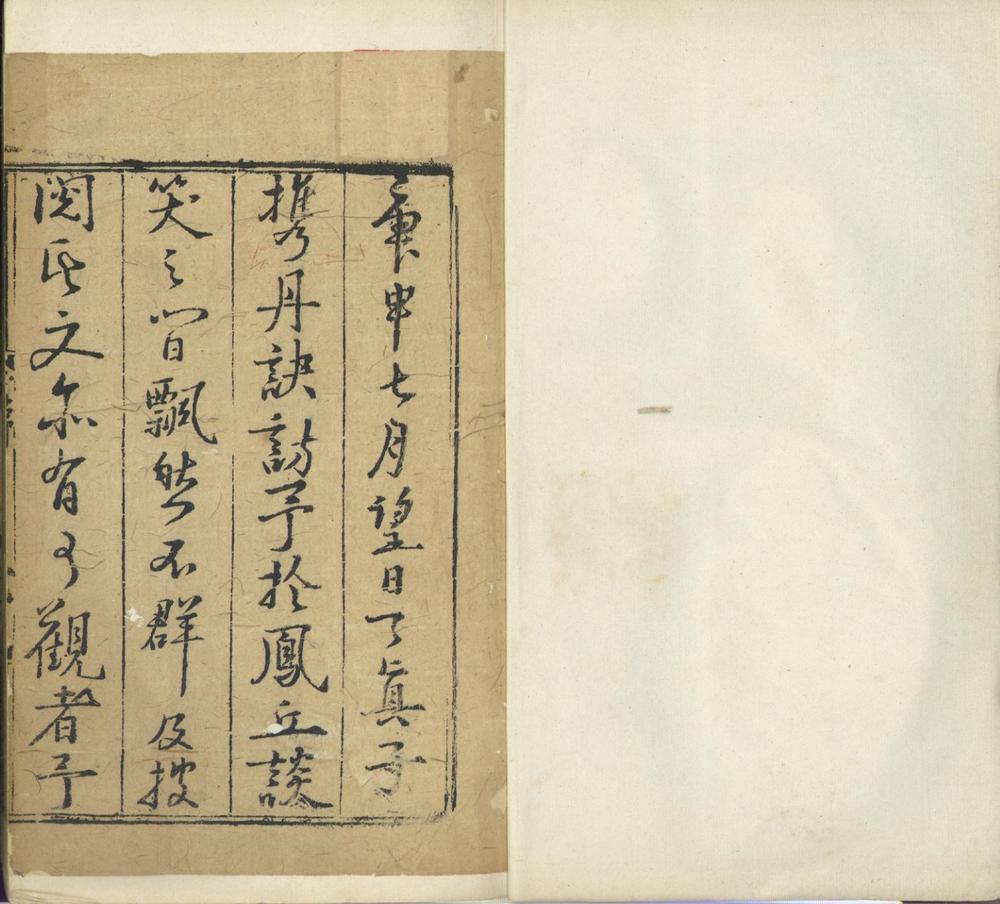 庚申七月望日了眞子
携丹訣訪予於鳳丘談
笑之間飄然不群及披
閱其文亦有可觀者予